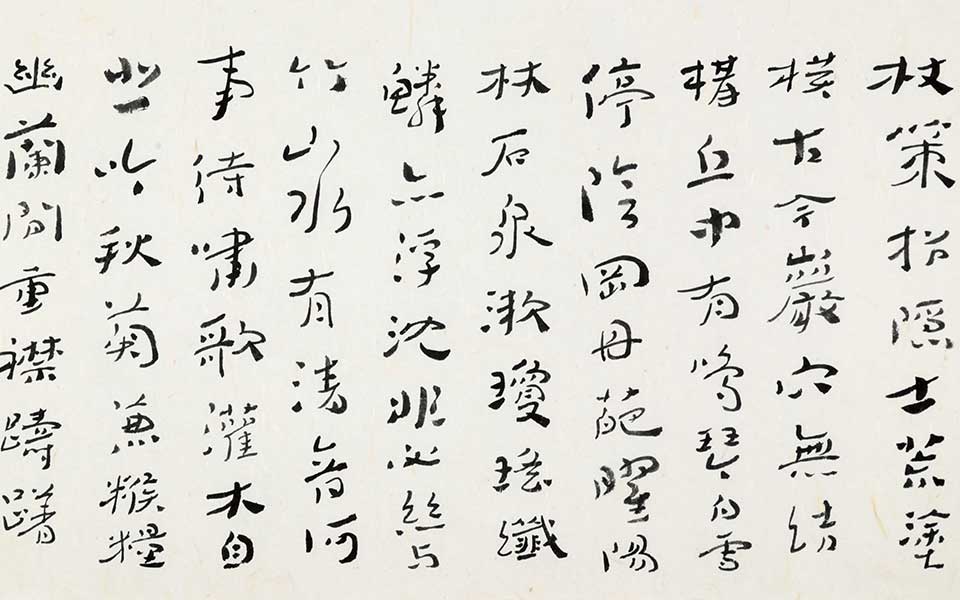 杖策招隱士荒塗
橫古今巖穴無結
構丘中有鳴琴白雪
停陰岡丹葩曜陽
林石泉漱瓊瑤纖
鱗亦浮沈非必絲与
竹山水有清音何
事待嘯歌灌木自
悲吟秋菊兼糇糧
幽蘭間重襟躊躇